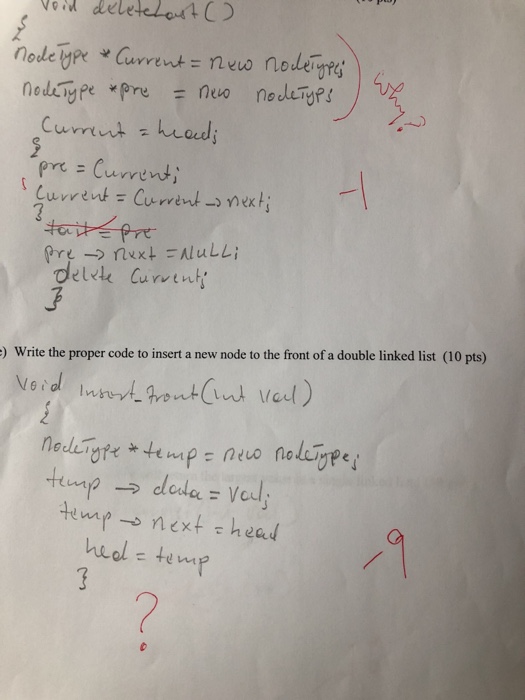 Void deleteLast()
{
nodeType * Current = new nodeType;
nodeType *pre = new nodeType
Why?
Current = head;
{
pre = Current;
Current = Current → next;
-1
}
tail = pre
pre → next = NULL;
delete Current;
}
e) Write the proper code to insert a new node to the front of a double linked list (10 pts)
Void Insert_front(int val)
{
nodeType * temp = new nodeType;
temp → data = Val;
temp → next = head
hed = temp
-9
}
?